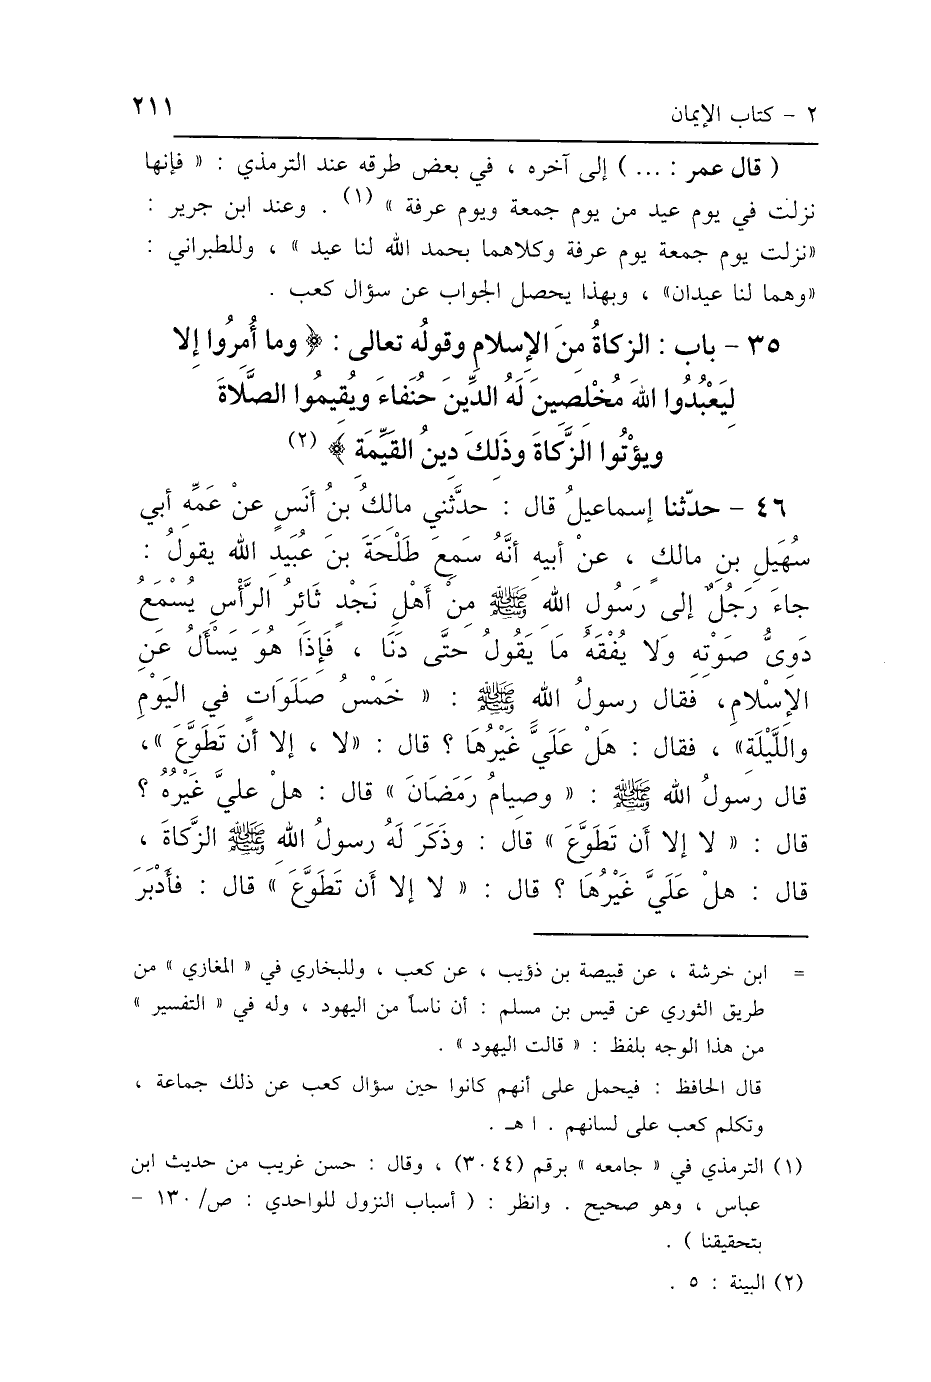 ٢ - كتاب الإيمان ٢١١
( قال عمر : ... ) إلى آخره ، في بعض طرقه عند الترمذي : « فإنها
نزلت في يوم عيد من يوم جمعة ويوم عرفة » (١) . وعند ابن جرير :
«نزلت يوم جمعة يوم عرفة وكلاهما بحمد الله لنا عيد » ، وللطبراني :
«وهما لنا عيدان» ، وبهذا يحصل الجواب عن سؤال كعب .
٣٥ - باب : الزكاةُ مِنَ الإِسلامِ وقولُه تعالى : ﴿ وما أُمِرُوا إلا
لِيَعْبُدُوا اللهَ مُخْلِصِينَ لَهُ الدِّينَ حُنَفاءَ ويُقِيمُوا الصَّلاةَ
ويؤْتُوا الزَّكاةَ وذَلكَ دِينُ القَيِّمَةِ ﴾ (٢)
٤٦ - حدّثنا إسماعيلُ قال : حدَّثني مالكُ بنُ أنَسٍ عنْ عَمِّه أبي
سُهَيلِ بنِ مالكٍ ، عنْ أبيهِ أنَّهُ سَمِعَ طَلْحَةَ بنَ عُبَيدِ اللهِ يقولُ :
جاءَ رَجُلٌ إلى رَسُولِ اللهِ ﷺ مِنْ أهْلِ نَجْدٍ ثَائِرُ الرَّأْسِ يُسْمَعُ
دَوِيُّ صَوْتِهِ وَلا يُفْقَهُ مَا يَقُولُ حتَّى دَنَا ، فَإذَا هُوَ يَسْأَلُ عَنِ
الإسْلامِ، فقال رسولُ اللهِ ﷺ : « خَمْسُ صَلَوَاتٍ في اليَوْمِ
واللَّيْلَةِ» ، فقال : هَلْ عَلَيَّ غَيْرُهَا ؟ قال : «لا ، إلا أن تَطَوَّعَ »،
قال رسولُ اللهِ ﷺ : « وصِيامُ رَمَضَانَ » قال : هلْ عليَّ غَيْرُهُ ؟
قال : « لا إلا أن تَطَوَّعَ » قال : وذَكَرَ لَهُ رسولُ اللهِ ﷺ الزَّكاةَ ،
قال : هلْ عَلَيَّ غَيْرُهَا ؟ قال : « لا إلا أن تَطَوَّعَ » قال : فأَدْبَرَ
= ابن خرشة ، عن قبيصة بن ذؤيب ، عن كعب ، وللبخاري في « المغازي » من
طريق الثوري عن قيس بن مسلم : أن ناساً من اليهود ، وله في « التفسير »
من هذا الوجه بلفظ : « قالت اليهود » .
قال الحافظ : فيحمل على أنهم كانوا حين سؤال كعب عن ذلك جماعة ،
وتكلم كعب على لسانهم . ا هـ .
(١) الترمذي في « جامعه » برقم (٣٠٤٤) ، وقال : حسن غريب من حديث ابن
عباس ، وهو صحيح . وانظر : ( أسباب النزول للواحدي : ص/ ١٣٠ -
بتحقيقنا ) .
(٢) البينة : ٥ .